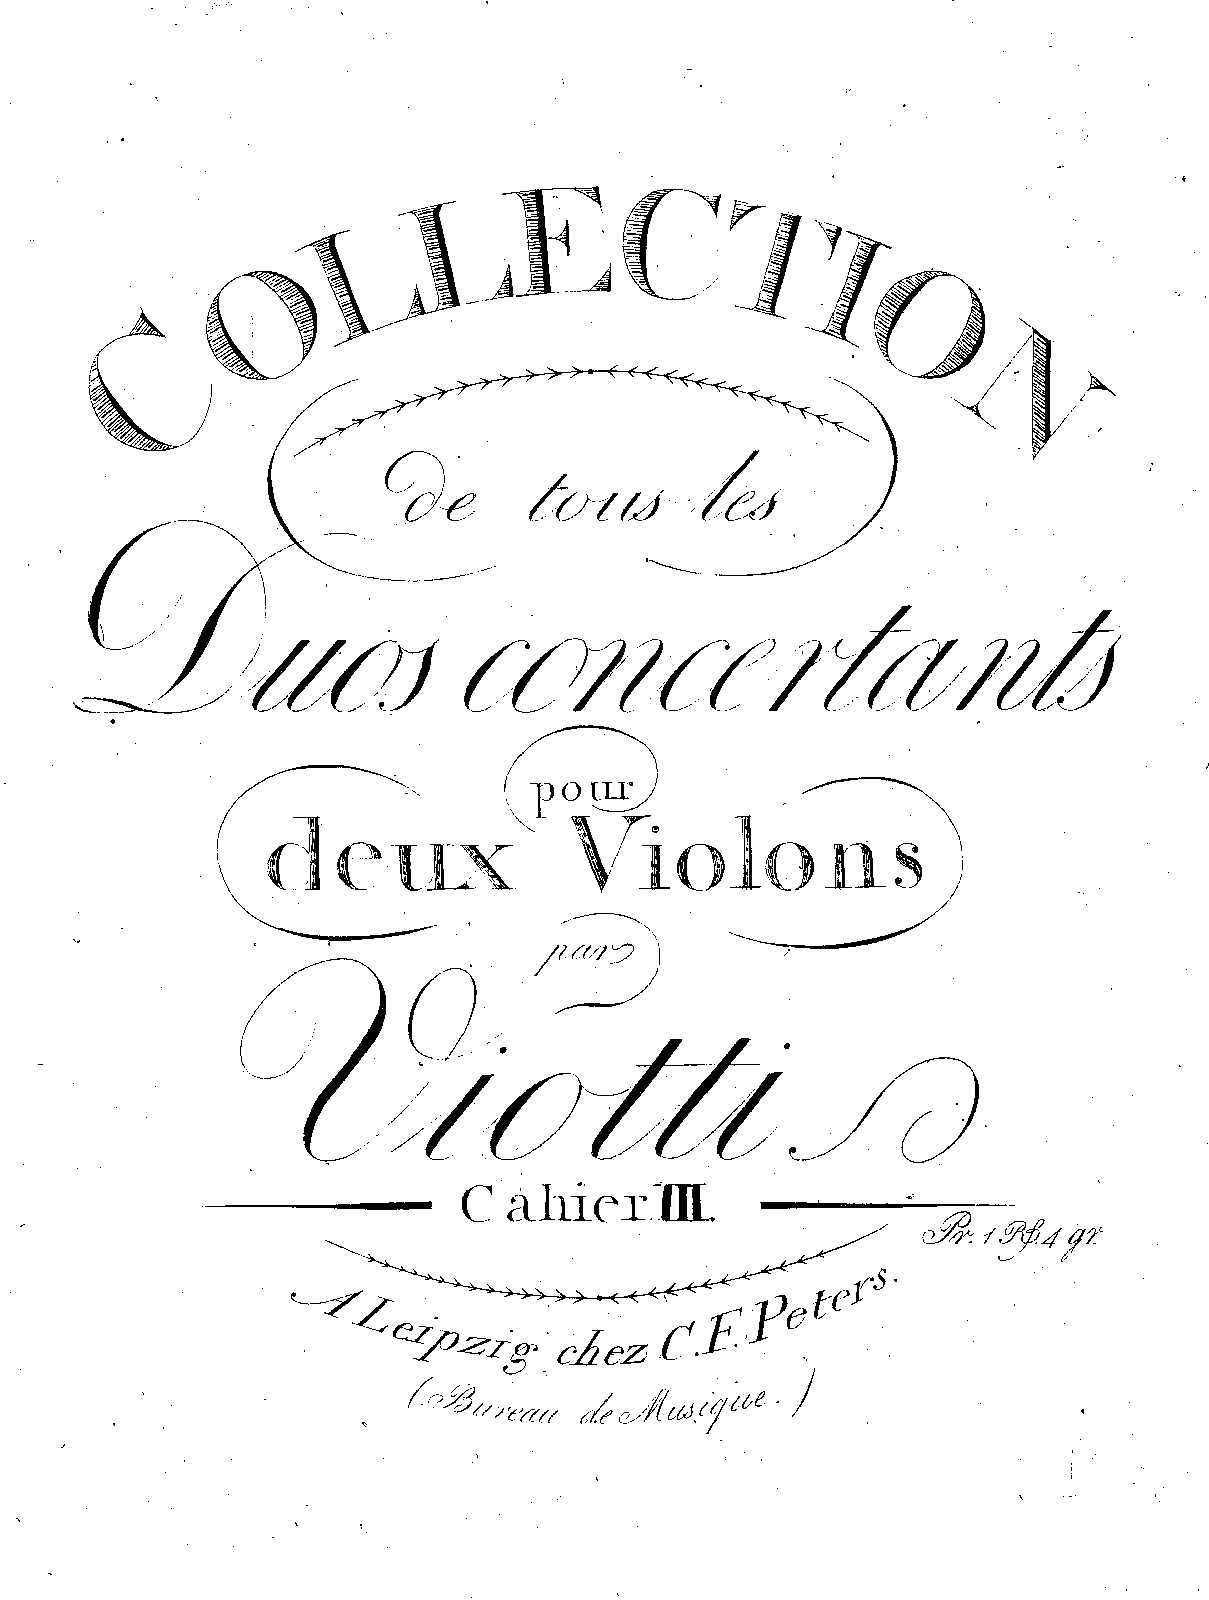 COLLECTION
de tous les
Duos concertants
pour
deux Violons
par
Viotti
Cahier III.
Pr. 1 Rth 4 gr.
A Leipzig chez C. F. Peters.
(Bureau de Musique.)